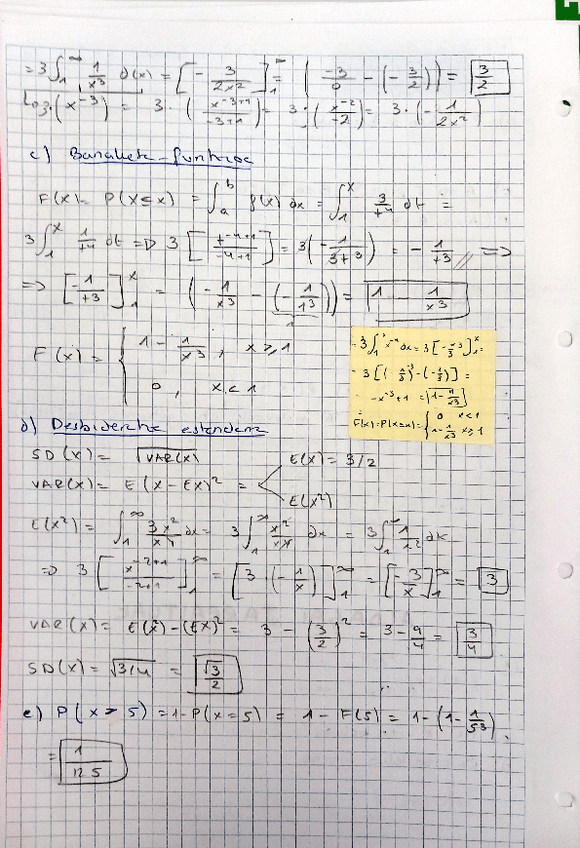 = 3 ∫₁^∞ 1/x³ d(x) = [-3/2x²]₁^∞ = (-3/0 - (-3/2)) = 3/2
(x⁻³) = 3·(x⁻³⁺¹/-3+1) = 3·(x⁻²/-2) = 3·(-1/2x²)
c) Banaketa-funtzioa
F(x) = P(X≤x) = ∫ₐᵇ f(x) dx = ∫₁ˣ 3/t⁴ dt =
3 ∫₁ˣ 1/t⁴ dt => 3 [t⁻⁴⁺¹/-4+1] = 3(-1/3t³) = -1/t³ =>
=> [-1/t³]₁ˣ = (-1/x³ - (-1/1³)) = 1 - 1/x³
1
F(x) = { 1 - 1/x³, x≥1
0, x<1
- 3 ∫₁ˣ x⁻⁴ dx = 3[-x⁻³/3]₁ˣ =
F(x) = P(X≤x) = { 0 x<1
1 - 1/x³ x≥1
d) Desbiderazio estandarra
SD(x) = √VAR(x)
VAR(x) = E(x-EX)² = < E(x) = 3/2
E(x²)
E(x²) = ∫₁^∞ 3x²/x⁴ dx = 3 ∫₁^∞ x²/x⁴ dx = 3 ∫₁^∞ 1/x² dx
=> 3 [x⁻²⁺¹/-2+1]₁^∞ = [3·(-1/x)]₁^∞ = [-3/x]₁^∞ = 3
VAR(x) = E(x²) - (EX)² = 3 - (3/2)² = 3 - 9/4 = 3/4
SD(x) = √3/4 = √3/2
e) P(x>5) = 1-P(x=5) = 1 - F(5) = 1-(1-1/5³)
= 1/125